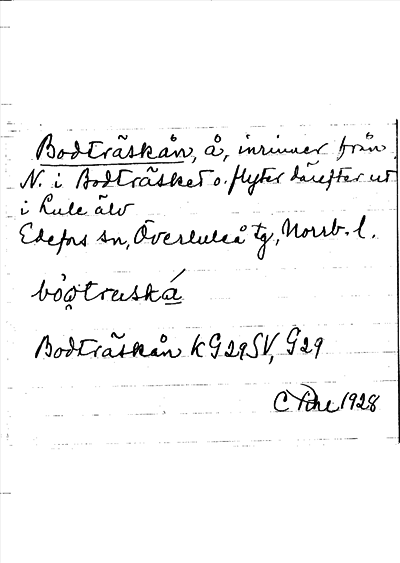 Bodträskån, å, inrinner från
N. i Bodträsket o. flyter därefter ut
i Lule älv
Edefors sn, Överluleå tg, Norrb. l.
Bodträskån K G29SV, G29
1928